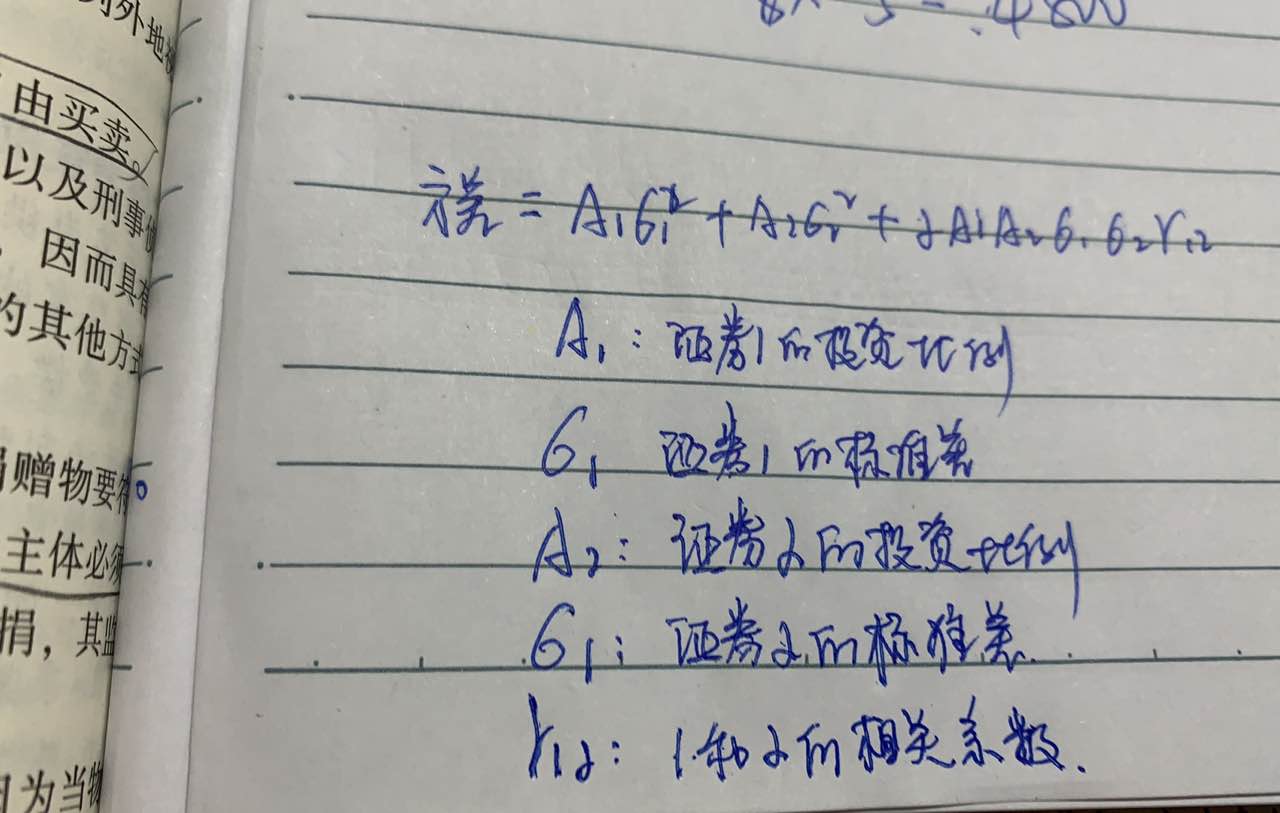 列外地
由买卖。
以及刑事
因而具有
的其他方式
赠物要符
主体必须
捐，其监
因为当物
方差 = A₁б₁² + A₂б₂² + 2A₁A₂б₁б₂r₁₂
A₁：证券1的投资比例
б₁ 证券1的标准差
A₂：证券2的投资比例
б₁：证券2的标准差.
r₁₂：1和2的相关系数.